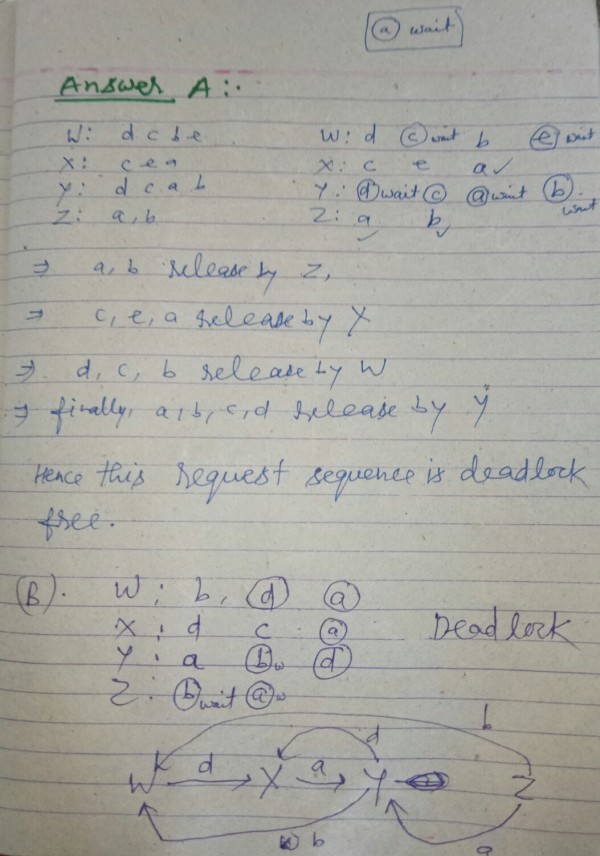 a wait
Answer A:·
W: d c b e W: d c wait b e wait
X: c e a X: c e a ✓
Y: d c a b Y: d wait c a wait b wait
Z: a, b Z: a b
⇒ a, b release by Z,
⇒ c, e, a release by X
⇒ d, c, b release by W
⇒ finally, a, b, c, d release by Y
Hence this request sequence is deadlock
free.
(B). W: b, d a
X: d c a Deadlock
Y: a b w d
Z: b wait a w
b
d
W d X a Y Z
b
a